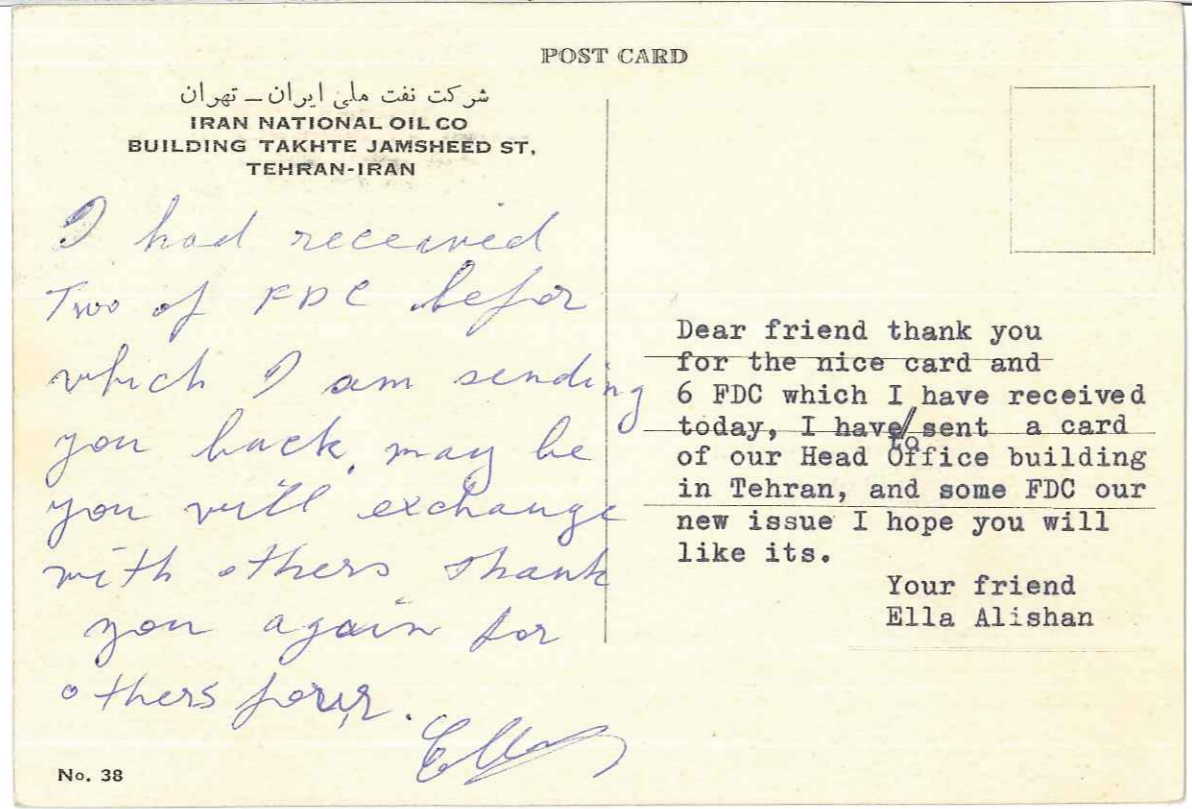 POST CARD
شرکت نفت ملی ایران ـ تهران
IRAN NATIONAL OIL CO
BUILDING TAKHTE JAMSHEED ST,
TEHRAN-IRAN
I had received
Two of FDC befor
which I am sending
you back, may be
you will exchange
with others thank
you again for
others four.
Ella
No. 38
Dear friend thank you
for the nice card and
6 FDC which I have received
today, I have/sent a card
to
of our Head Office building
in Tehran, and some FDC our
new issue I hope you will
like its.
Your friend
Ella Alishan